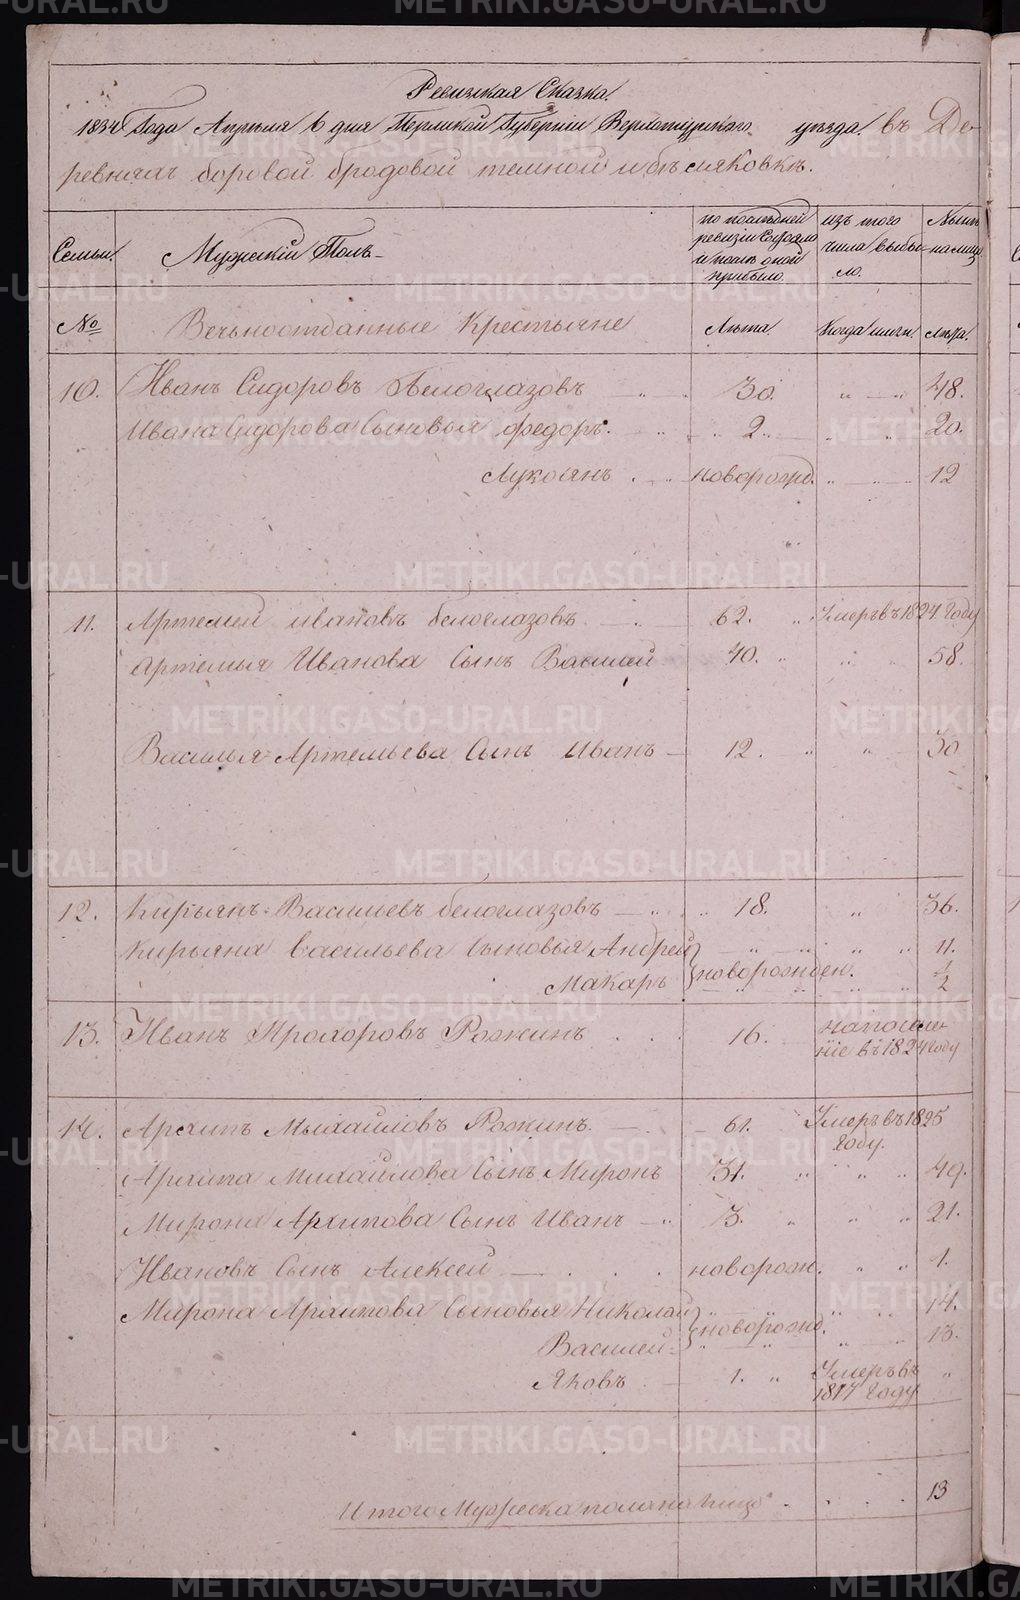 Ревизкая Сказка.
1834 Года Апреля 6 дня Пермской Губернiи Верхотурскаго уезда. въ Де-
ревняхъ боровой бродовой темной и бѣсяковкѣ.
Семьи. Мужескiй Полъ- по последней ревизiи Состояло и после оной прибыло. изъ того числа выбыло. Нынѣ налицо.
№ Вечьноотданные Крестьяне Лѣта Когда имен. лѣта.
10. Иванъ Сидоровъ Белоглазовъ 30. „ „ 48.
Ивана Сидорова Сыновья федоръ. „ 2. „ 20.
Лукоянъ новорожд. „ „ 12
11. Артемий ивановъ белоглазовъ 62. „ Умеръ въ 1824 Году
Артемья Иванова Сынъ Василий 40. „ „ „ 58.
Василья Артемьева Сынъ Иванъ 12. „ „ 30
12. Кирьянъ Васильевъ белоглазовъ „ 18. „ „ 36.
Кирьяна Васильева Сыновья Андрей „ „ 11.
Макаръ } новорожден. 1/2
13. Иванъ Прохоровъ Рожинъ 16. на поселе-
нiе въ 1824 году
14. Архипъ Михаиловъ Рожинъ. 61. Умеръ въ 1825
Году.
Архипа Михаилова Сынъ Миронъ 31. „ „ „ 49.
Мирона Архипова Сынъ Иванъ 3. „ „ „ 21.
Ивановъ Сынъ Алексей новорож. „ „ 1.
Мирона Архипова Сыновья Николай „ „ 14.
Василей } новорожд. „ 13.
Яковъ 1. „ Умеръ въ „
1817 Году
Итого Мужеска пола налицо 13
METRIKI.GASO-URAL.RU